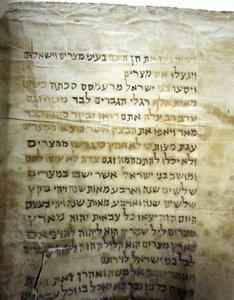 נתן את חן העם בעיני מצרים וישאלום
וינצלו את מצרים
ויסעו בני ישראל מרעמסס סכתה כשש
מאות אלף רגלי הגברים לבד מטף וגם
ערב רב עלה אתם וצאן ובקר מקנה כבד
מאד ויאפו את הבצק אשר הוציאו ממצרים
עגת מצות כי לא חמץ כי גרשו ממצרים
ולא יכלו להתמהמה וגם צדה לא עשו להם
ומושב בני ישראל אשר ישבו במצרים
שלשים שנה וארבע מאות שנה ויהי מקץ
שלשים שנה וארבע מאות שנה ויהי בעצם
היום הזה יצאו כל צבאות יהוה מארץ
מצרים ליל שמרים הוא ליהוה להוציאם
מארץ מצרים הוא הלילה הזה ליהוה שמרים
לכל בני ישראל לדרתם
ויאמר יהוה אל משה ואהרן זאת חקת
הפסח כל בן נכר לא יאכל בו וכל